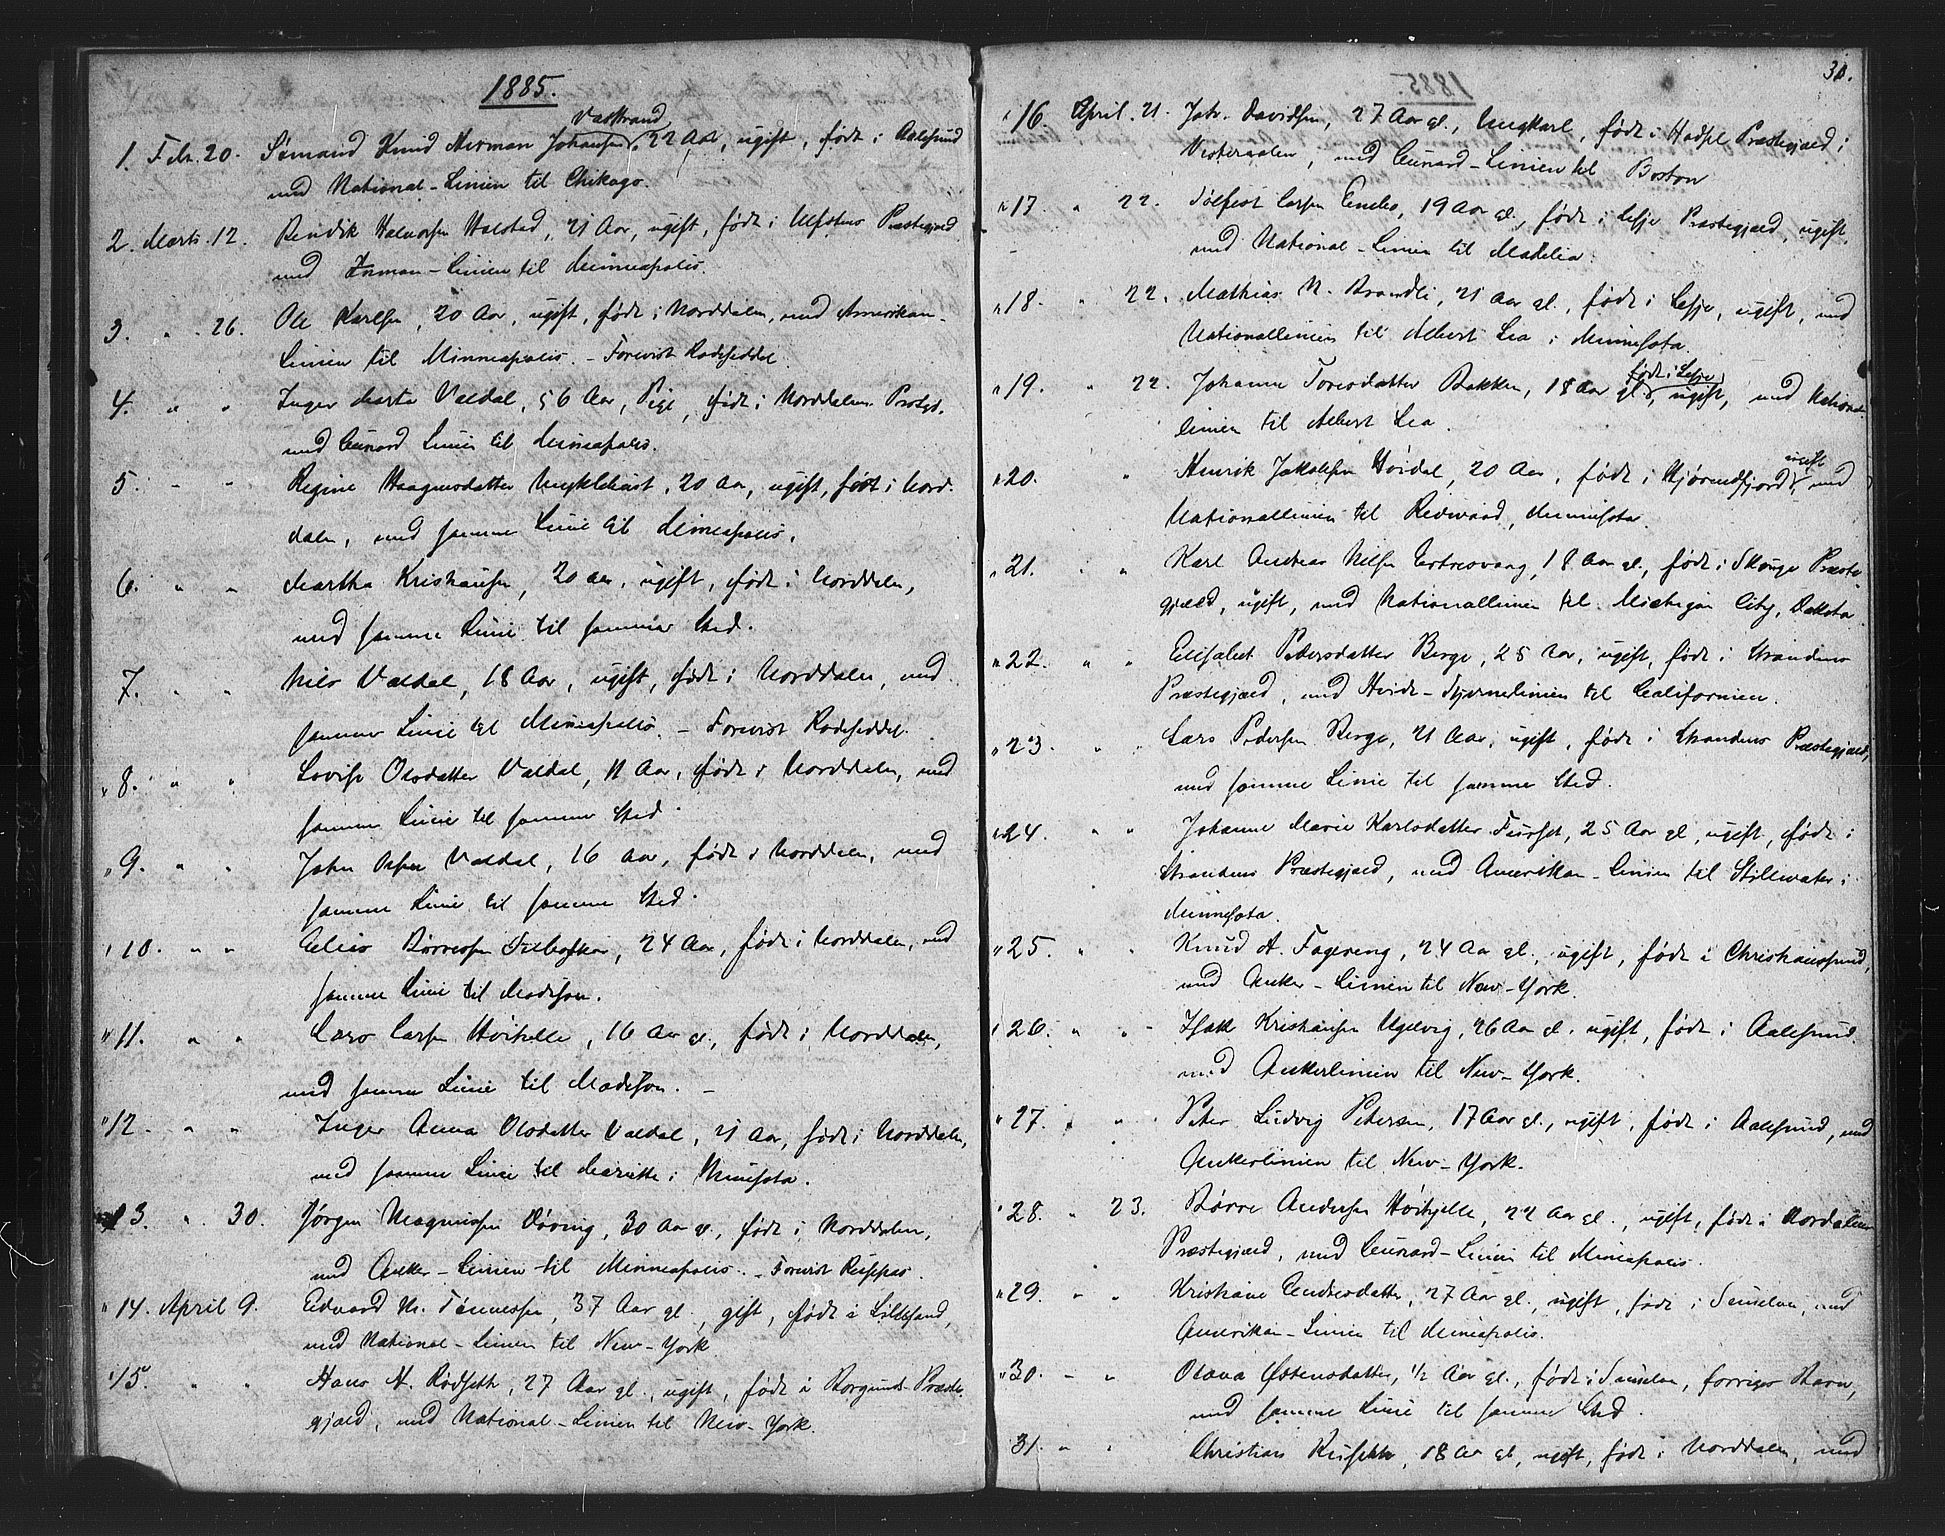 1885.
Vatstrand
1. Febr. 20. Sømand Knud Herman Johansen, 22 Aar, ugift, født i Aalesund
med National-Linien til Chikago.
2. Marts 12. Bendik Halvorsen Halstad, 21 Aar, ugift, født i Ulfstens Præstegjæld
med Inman-Linien til Minneapolis.
3. " 26. Ole Karlsen, 20 Aar, ugift, født i Norddalen, med Amerikan-
Linien til Minneapolis. - Forevist Rodeseddel.
4. " " Inger Marta Valdal, 56 Aar, Pige, født i Norddalens Prstgd.
med Cunard Linien til Minneapolis.
5. " " Regine Haagensdatter Myklebust, 20 Aar, ugift, født i Nord-
dalen, med samme Linie til Minneapolis.
6. " " Martha Kristiansen, 20 Aar, ugift, født i Norddalen,
med samme Linie til samme Sted.
7. " " Nils Valdal, 18 Aar, ugift, født i Norddalen, med
samme Linie til Minneapolis. - Forevist Rodeseddel.
" 8. " " Lovise Olsdatter Valdal, 11 Aar, født i Norddalen, med
samme Linie til samme Sted.
" 9. " " John Olsen Valdal, 16 Aar, født i Norddalen, med
samme Linie til samme Sted.
" 10. " " Elias Børresen, 24 Aar, født i Norddalen, med
samme Linie til Madison.
" 11. " " Lars Larsen Høihelle, 16 Aar gl., født i Norddalen,
med samme Linie til Madison. -
" 12 " " Inger Anna Olsdatter Valdal, 21 Aar, født i Norddalen,
med samme Linie til Mariette i Minnesota.
13. " 30. Jørgen Magnussen Døving, 30 Aar gl., født i Norddalen,
med Anker-Linien til Minneapolis. - Forevist Rulpas.
" 14. April 9. Edvard M. Tønnessen, 37 Aar gl., gift, født i Lillesand,
med National-Linien til New-York.
" 15. " " Hans H. Rødseth, 27 Aar gl., ugift, født i Borgunds Præste-
gjæld, med National-Linien til New-York.
1885.
31.
" 16 April. 21. Joh. Davidsen, 27 Aar gl., Ungkarl, født i Hadsel Præstegjæld i
Vesteraalen, med Cunard-Linien til Boston
" 17. " 22. Sølfest Larsen Enebo, 19 Aar gl., født i Lesje Præstegjæld, ugift,
med National-Linien til Madelia.
" 18. " 22. Mathias N. Brandli, 21 Aar gl., født i Lesje, ugift, med
Nationallinien til Albert Lea i Minnesota.
født i Lesje,
" 19. " 22. Johanne Toresdatter Bakken, 18 Aar gl., ugift, med National-
linien til Albert Lea.
ugift
" 20. " Henrik Jakobsen Høidal, 20 Aar, født i Hjørendfjord, med
Nationallinien til Redwood, Minnesota.
" 21. " " Karl Andreas Nilsen, 18 Aar gl., født i Skonge Præste-
gjæld, ugift, med Nationallinien til Michigan City, Dakota
" 22. " " Elisabet Pedersdatter Berge, 25 Aar, ugift, født i Strandens
Præstegjæld, med Hvide-Stjernelinien til Californien.
" 23. " " Lars Pedersen Berge, 21 Aar, ugift, født i Strandens Præstegjæld,
med samme Linie til samme Sted.
" 24. " " Johanne Marie Karlsdatter Furset, 25 Aar gl, ugift, født i
Strandens Præstegjæld, med Amerikan-Linien til Stillwater i
Minnesota.
" 25. " " Knud A. Fagereng, 24 Aar gl., ugift, født i Christianssund,
med Anker-Linien til New-York.
" 26. " " Isak Kristiansen Ugelvig, 26 Aar gl. ugift, født i Aalesund.
med Ankerlinien til New-York.
" 27. " " Peter Ludvig Petersen, 17 Aar gl., ugift, født i Aalesund, med
Ankerlinien til New-York.
" 28. " 23. Børre Andersen Høihjelle, 22 Aar gl., ugift, født i Nordalens
Præstegjæld, med Cunard-Linien til Mineapolis.
" 29. " " Kristiane Endresdatter, 27 Aar gl., ugift, født i Sunelven, med
Amerikan-Linien til Mineapolis.
" 30. " " Olava Østensdatter, 1/2 Aar gl., født i Sunelven, forriges Barn,
med samme Linie til samme Sted.
" 31. " " Christian, 18 Aar gl, ugift, født i Norddalen, med